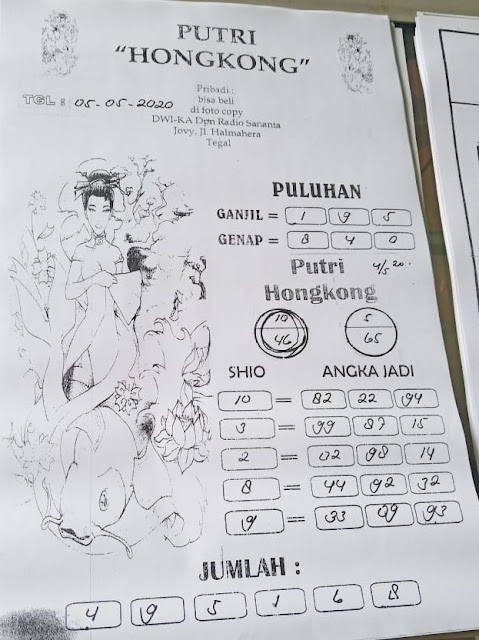 PUTRI
"HONGKONG"
Pribadi :
bisa beli
di foto copy
DWI-KA Dpn Radio Sananta
Jovy, Jl. Halmahera
Tegal
TGL : 05-05-2020
PULUHAN
GANJIL = 1 9 5
GENAP = 8 4 0
Putri 4/5 20.
Hongkong
10 5
46 65
SHIO ANGKA JADI
10 = 82 22 94
3 = 99 87 15
2 = 02 98 14
8 = 44 92 32
9 = 33 09 93
JUMLAH :
4 9 5 1 6 8